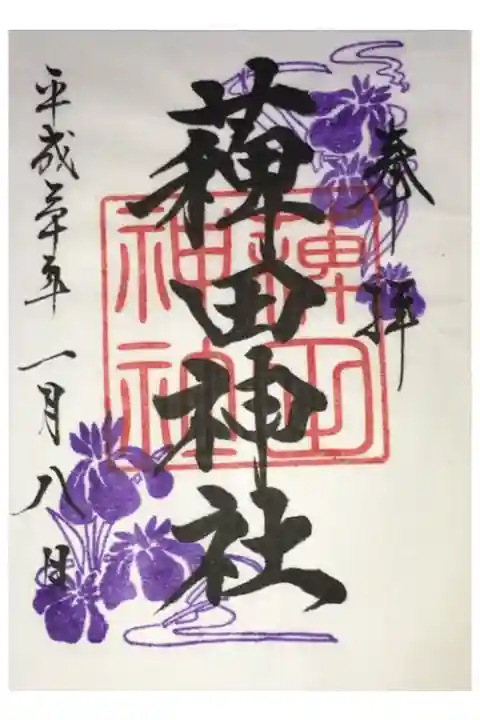 奉拝
薭田神社
稗田
神社
平成三十年一月八日